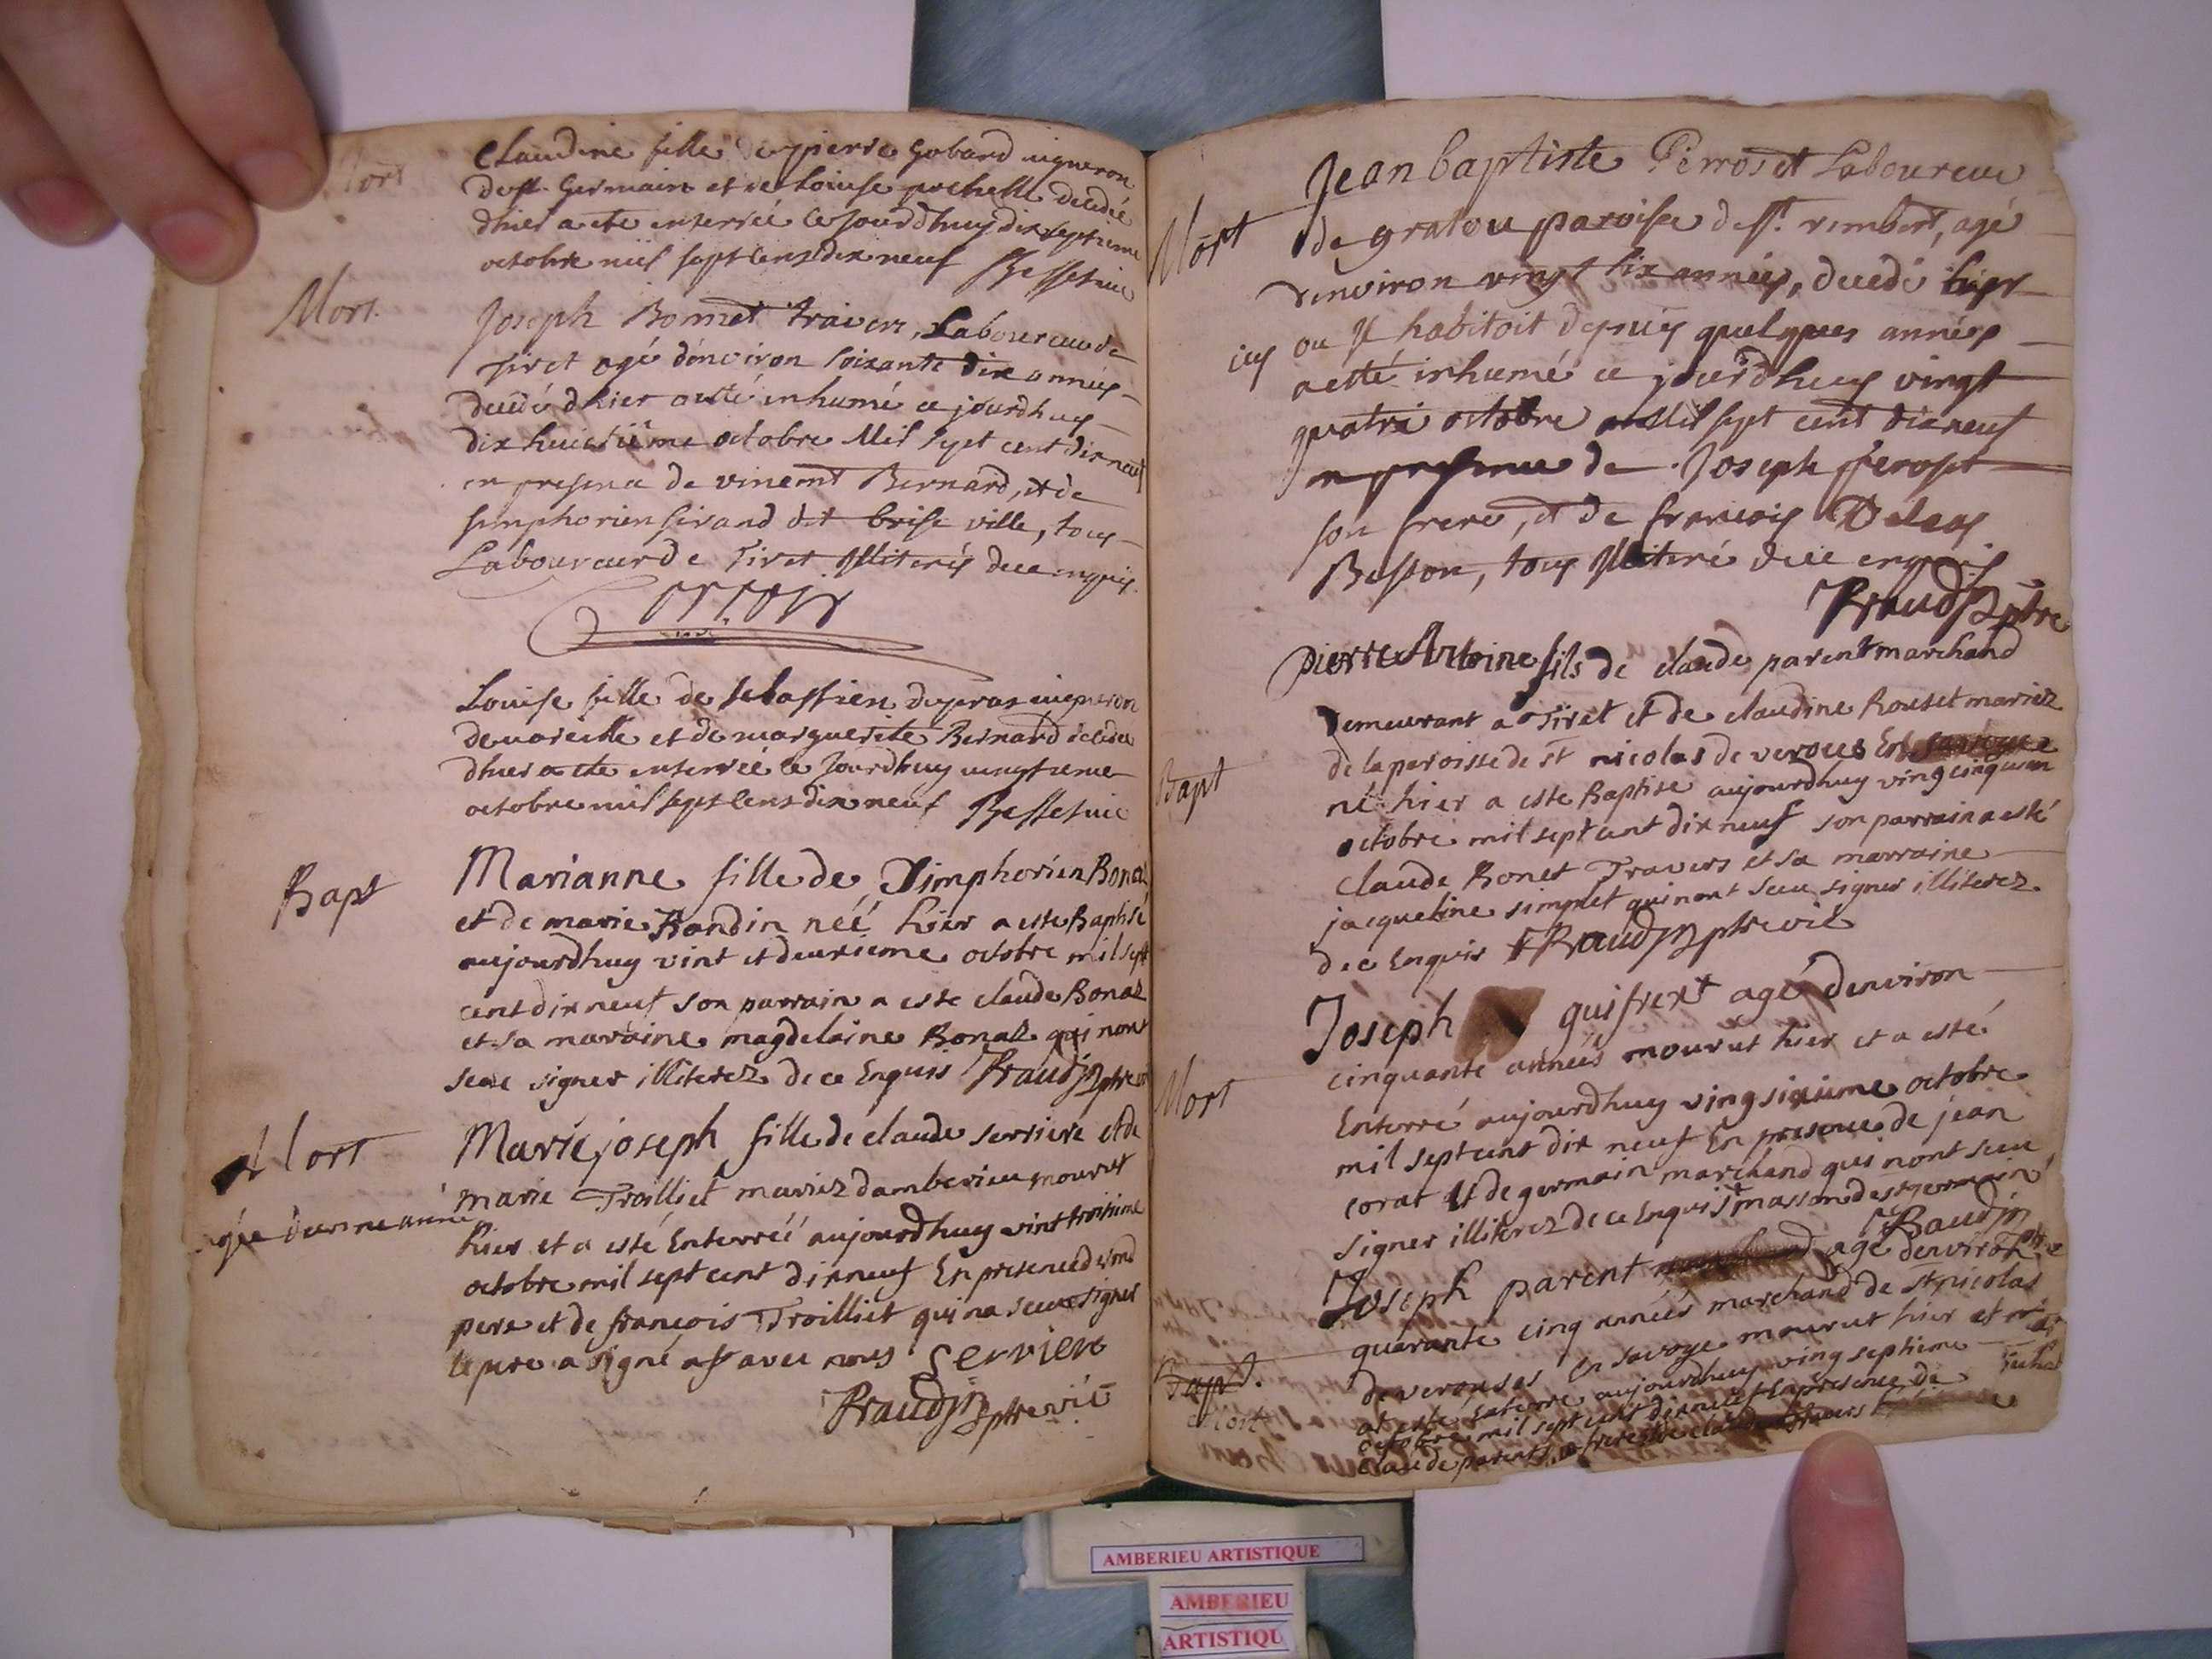 Mort
Claudine fille de pierre Gobard vigneron
de st Germain et de Louise pochelle decedée
dhier a ete enterrée ce jourdhuy dix septieme
octobre mil sept cens dix neuf
Mort
Joseph Bonnet travers, Laboureur de
tiret agé denviron soixante dix années
decedé dhier a esté inhumé ce jourdhuy
dix huictième octobre Mil sept cent dix neuf
en presence de vincent Bernard, et de
simphorien sirand dit brise ville, tous
Laboureur de Tiret Illiterés de ce enquis.
Louise fille de sebastien dupras vigneron
de vareille et de marguerite Bernard decedee
dhier a ete enterrée ce jourdhuy vingtieme
octobre mil sept cens dix neuf
Bapt
Marianne fille de Simphorien Bonaz
et de marie Baudin néé hier a este Baptisé
aujourdhuy vint et deuxieme octobre mil sept
cent dix neuf son parrain a este claude Bonaz
et sa marraine magdelaine Bonaz qui nont
sceu signer illiterez de ce Enquis
Mort
agée d'une année
Marie joseph fille de claude serriere et de
marie Trolliet mariez damberieu mourut
hier et a esté Enterréé aujourdhuy vint troisieme
octobre mil sept cent dix neuf En presence dud
pere et de francois Trolliet qui na sceu signer
le pere a signé avec nous
Mort
Jean baptiste Perroset Laboureur
de gratou paroisse de st. rembert, agé
denviron vingt six années, decedé hier
icy ou Il habitoit depuis quelques années
a esté inhumé ce jourdhuy vingt
quatre octobre Mil sept cent dix neuf
en presence de Joseph perroset
son frere, et de francois
Besson, tous Illiteré de ce enquis
Bapt
pierre Antoine fils de claude parent marchand
demeurant a Tiret et de claudine Rouset mariez
de la paroisse de st nicolas de veroces En savoye
né hier a este Baptise aujourdhuy ving cinquiem
octobre mil sept cent dix neuf son parrain a esté
claude Bonet Travers et sa marraine
jacqueline simplet qui nont sceu signer illiterez
de ce Enquis
Mort
Joseph guifrext agé denviron
cinquante années mourut hier et a esté
Enterré aujourdhuy ving sixieme octobre
mil sept cent dix neuf En presence de jean
corat et de germain marchand qui nont sceu
signer illiterez de ce Enquis masson de st germain
Joseph parent agé denviron
quarante cinq années marchand de st nicolas
de verouses en savoye mourut hier et
a esté Enterré aujourdhuy ving septieme
octobre mil sept cent dix neuf En presence de
claude parent
Bapt.
Mort
AMBERIEU ARTISTIQUE
AMBERIEU
ARTISTIQU